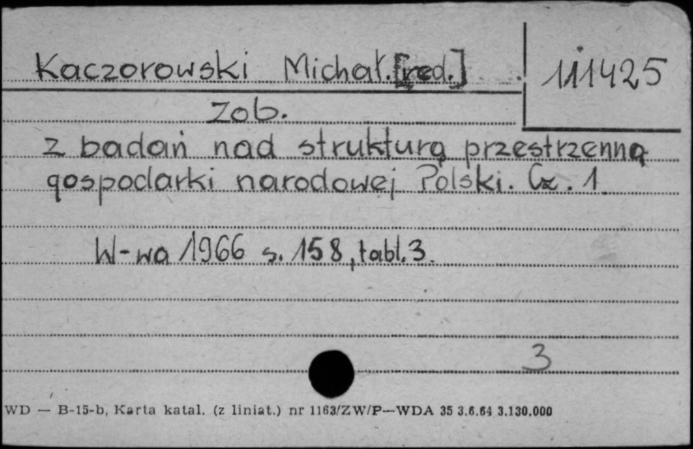 Kaczorowski Michał. [red.] 111425
Zob.
Z badań nad strukturą przestrzenną
gospodarki narodowej Polski. Cz. 1.
W-wa 1966 s. 158, tabl. 3.
3
WD — B-15-b, Karta katal. (z liniat.) nr 1163/ZW/P—WDA 35 3.6.64 3.130.000